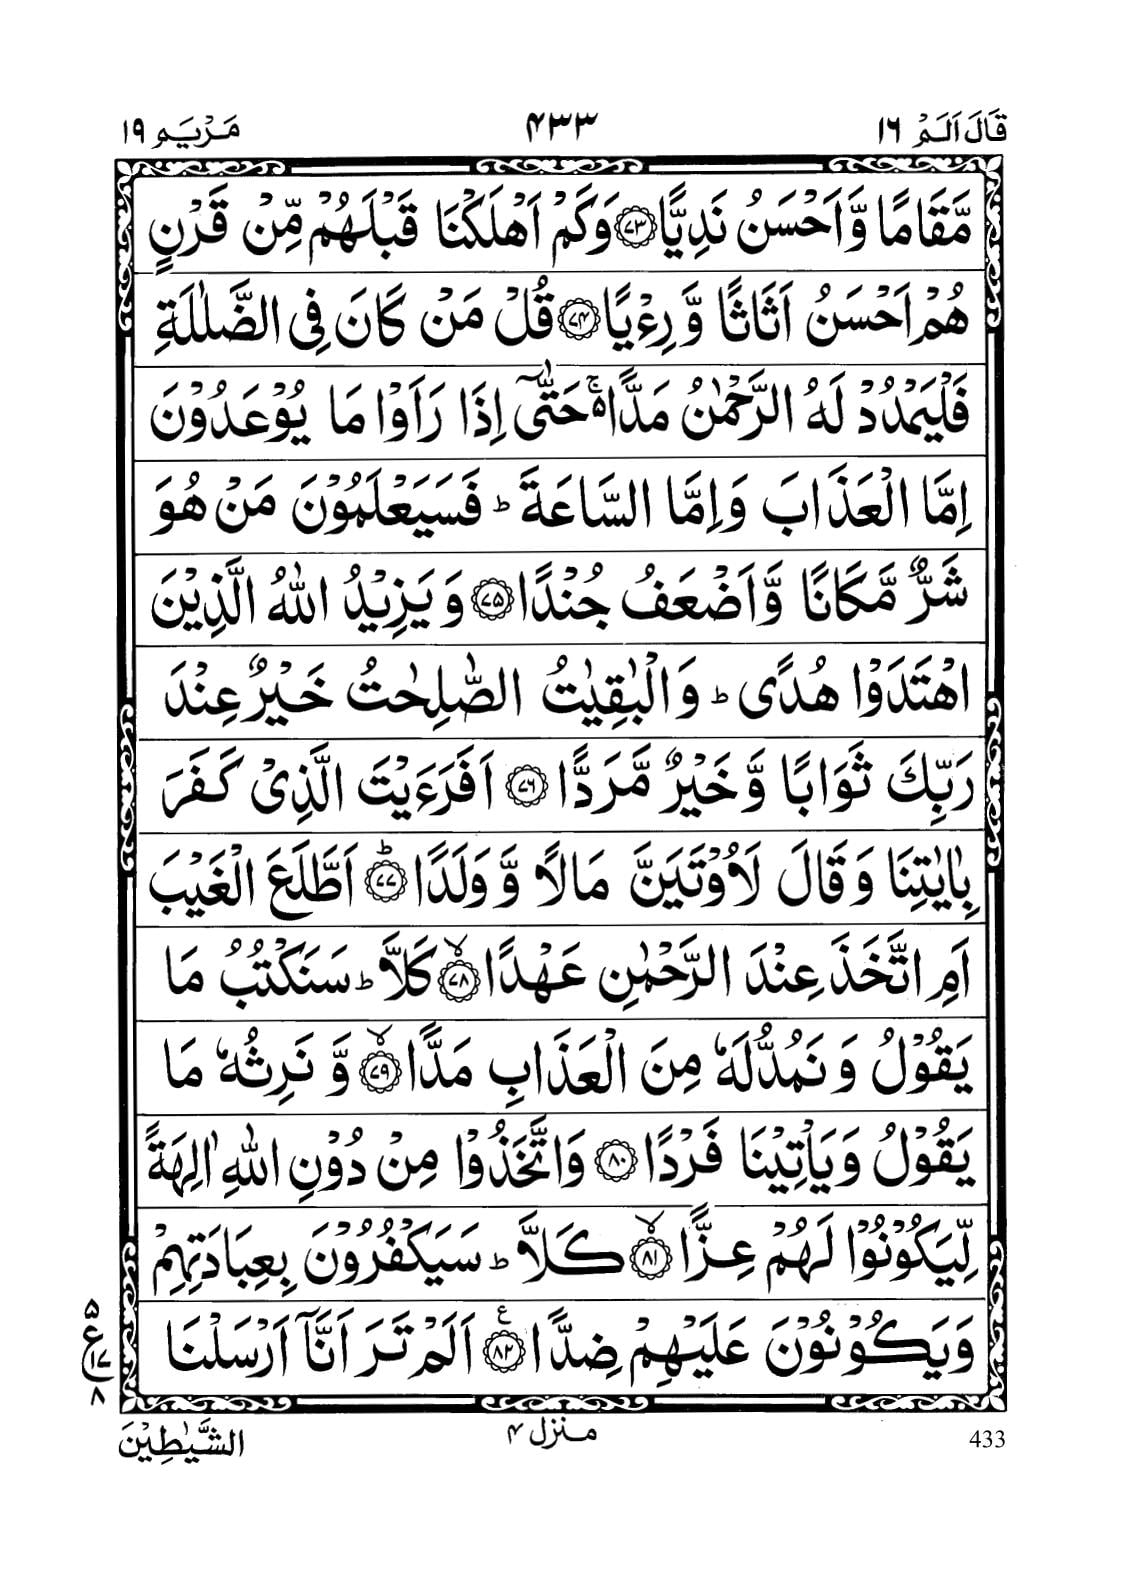 قَالَ اَلَمْ ١٦ ۴۳۳ مَرْيَم ١٩
مَّقَامًا وَّاَحْسَنُ نَدِيًّا ﴿۷۳﴾ وَكَمْ اَهْلَكْنَا قَبْلَهُمْ مِّنْ قَرْنٍ
هُمْ اَحْسَنُ اَثَاثًا وَّ رِءْيًا ﴿۷۴﴾ قُلْ مَنْ كَانَ فِى الضَّلٰلَةِ
فَلْيَمْدُدْ لَهُ الرَّحْمٰنُ مَدًّا ۵ۚ حَتّٰٓى اِذَا رَاَوْا مَا يُوْعَدُوْنَ
اِمَّا الْعَذَابَ وَاِمَّا السَّاعَةَ ؕ فَسَيَعْلَمُوْنَ مَنْ هُوَ
شَرٌّ مَّكَانًا وَّاَضْعَفُ جُنْدًا ﴿۷۵﴾ وَ يَزِيْدُ اللّٰهُ الَّذِيْنَ
اهْتَدَوْا هُدًى ؕ وَالْبٰقِيٰتُ الصّٰلِحٰتُ خَيْرٌ عِنْدَ
رَبِّكَ ثَوَابًا وَّ خَيْرٌ مَّرَدًّا ﴿۷۶﴾ اَفَرَءَيْتَ الَّذِىْ كَفَرَ
بِاٰيٰتِنَا وَ قَالَ لَاُوْتَيَنَّ مَالًا وَّ وَلَدًا ﴿۷۷﴾ؕ اَطَّلَعَ الْغَيْبَ
اَمِ اتَّخَذَ عِنْدَ الرَّحْمٰنِ عَهْدًا ﴿۷۸﴾ۙ كَلَّا ؕ سَنَكْتُبُ مَا
يَقُوْلُ وَ نَمُدُّ لَهٗ مِنَ الْعَذَابِ مَدًّا ﴿۷۹﴾ۙ وَّ نَرِثُهٗ مَا
يَقُوْلُ وَيَاْتِيْنَا فَرْدًا ﴿۸۰﴾ وَاتَّخَذُوْا مِنْ دُوْنِ اللّٰهِ اٰلِهَةً
لِّيَكُوْنُوْا لَهُمْ عِزًّا ﴿۸۱﴾ۙ كَلَّا ؕ سَيَكْفُرُوْنَ بِعِبَادَتِهِمْ
وَيَكُوْنُوْنَ عَلَيْهِمْ ضِدًّا ﴿۸۲﴾ع اَلَمْ تَرَ اَنَّآ اَرْسَلْنَا
۵
ع ۱۷
۸
433 منزل ۴ الشَّيٰطِيْنَ